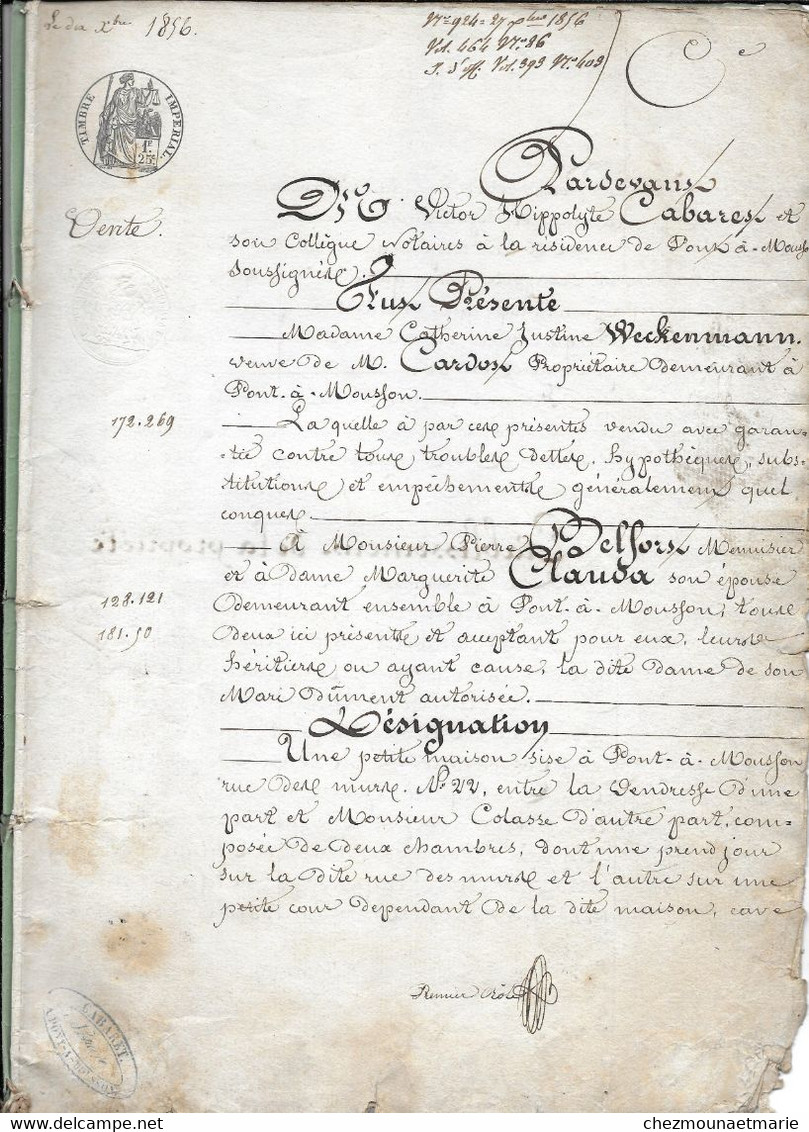 Le dix Xbre 1856.
N° 924 = 27 Xbre 1856
Vol. 464 N° 86
Vol. 393 N° 403
TIMBRE IMPERIAL
1F. 25c.
Pardevant
Me Victor Hippolyte Cabaret et
son Collègue Notaires à la résidence de Pont-à-Mousson
soussignés.
Fut Présente
Madame Catherine Justine Weckenmann.
veuve de M. Cardot Propriétaire demeurant à
Pont-à-Mousson.
La quelle à par ces présentes vendu avec garan-
-tie contre tous troubles dettes, hypothèques, subs-
-titutions et empêchements généralement quel
conques
À Monsieur Pierre Belfort Menuisier
et à Dame Marguerite Clauda son épouse
demeurant ensemble à Pont-à-Mousson, tous
deux ici présents et acceptant pour eux, leurs
héritiers ou ayant cause, la dite dame de son
Mari dûment autorisée.
Désignation
Une petite maison sise à Pont-à-Mousson
rue des murs. N° 22, entre la Vendresse d'une
part et Monsieur Colasse d'autre part, com-
posée de deux chambres, dont une prend jour
sur la dite rue des murs et l'autre sur une
petite cour dependant de la dite maison, cave
Vente.
172.269
128.121
181.50
Premier Rôle
CABARET
A PONT-A-MOUSSON
chezmounaetmarie